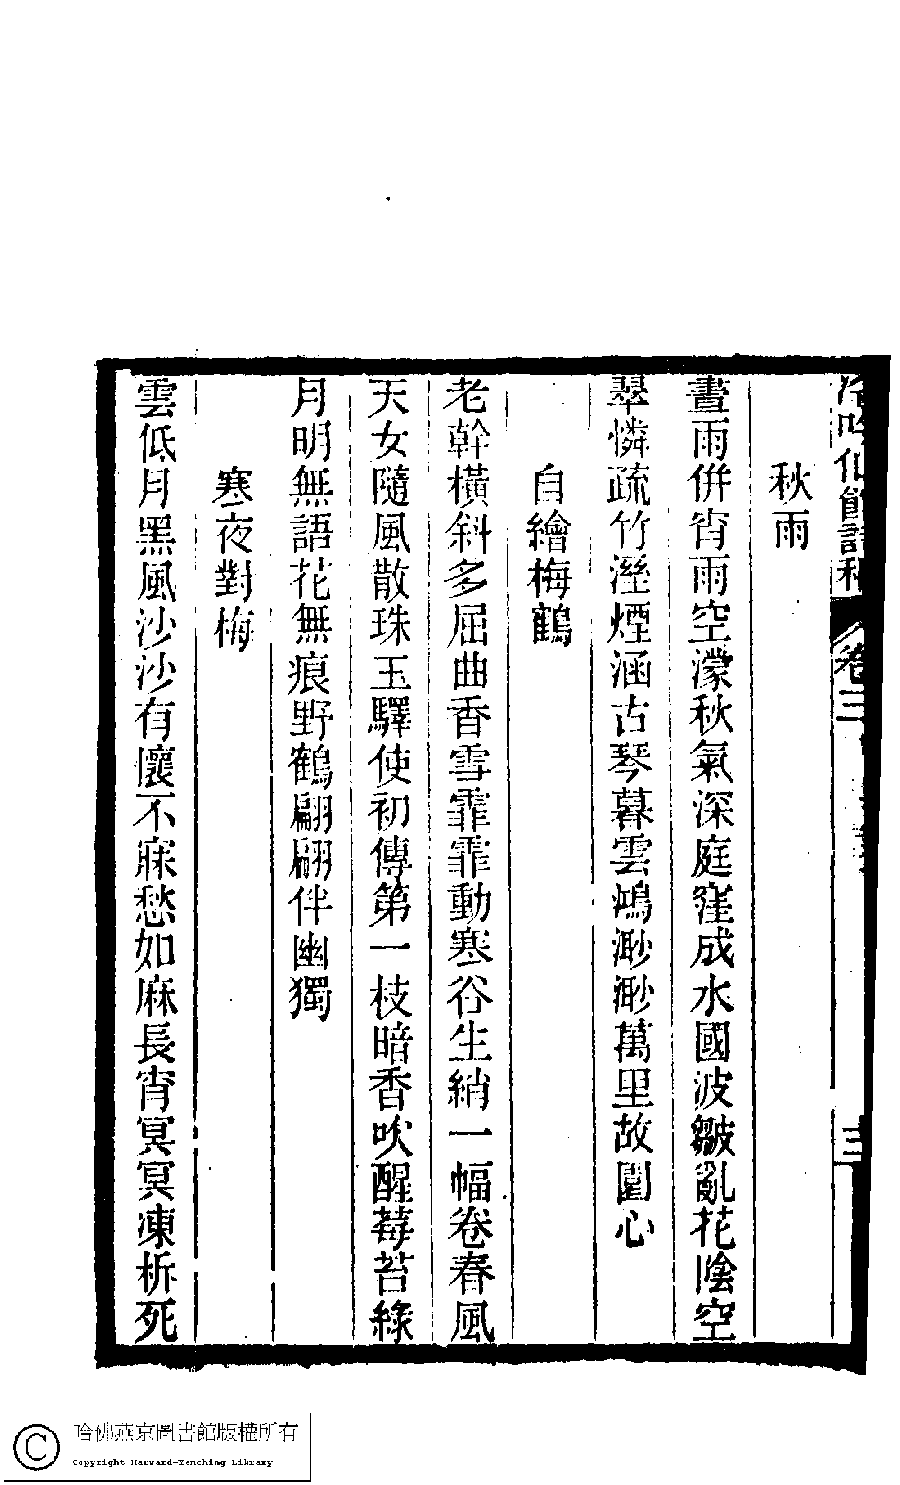 冷吟仙館詩稿 卷三 三
秋雨
晝雨併宵雨空濛秋氣深庭窪成水國波皺亂花陰空
翠憐疏竹溼煙涵古琴暮雲鴻渺渺萬里故園心
自繪梅鶴
老幹橫斜多屈曲香雪霏霏動寒谷生綃一幅卷春風
天女隨風散珠玉驛使初傳第一枝暗香吹醒莓苔綠
月明無語花無痕野鶴翩翩伴幽獨
寒夜對梅
雲低月黑風沙沙有懷不寐愁如麻長宵冥冥凍柝死
哈佛燕京圖書館版權所有
Copyright Harvard-Yenching Library